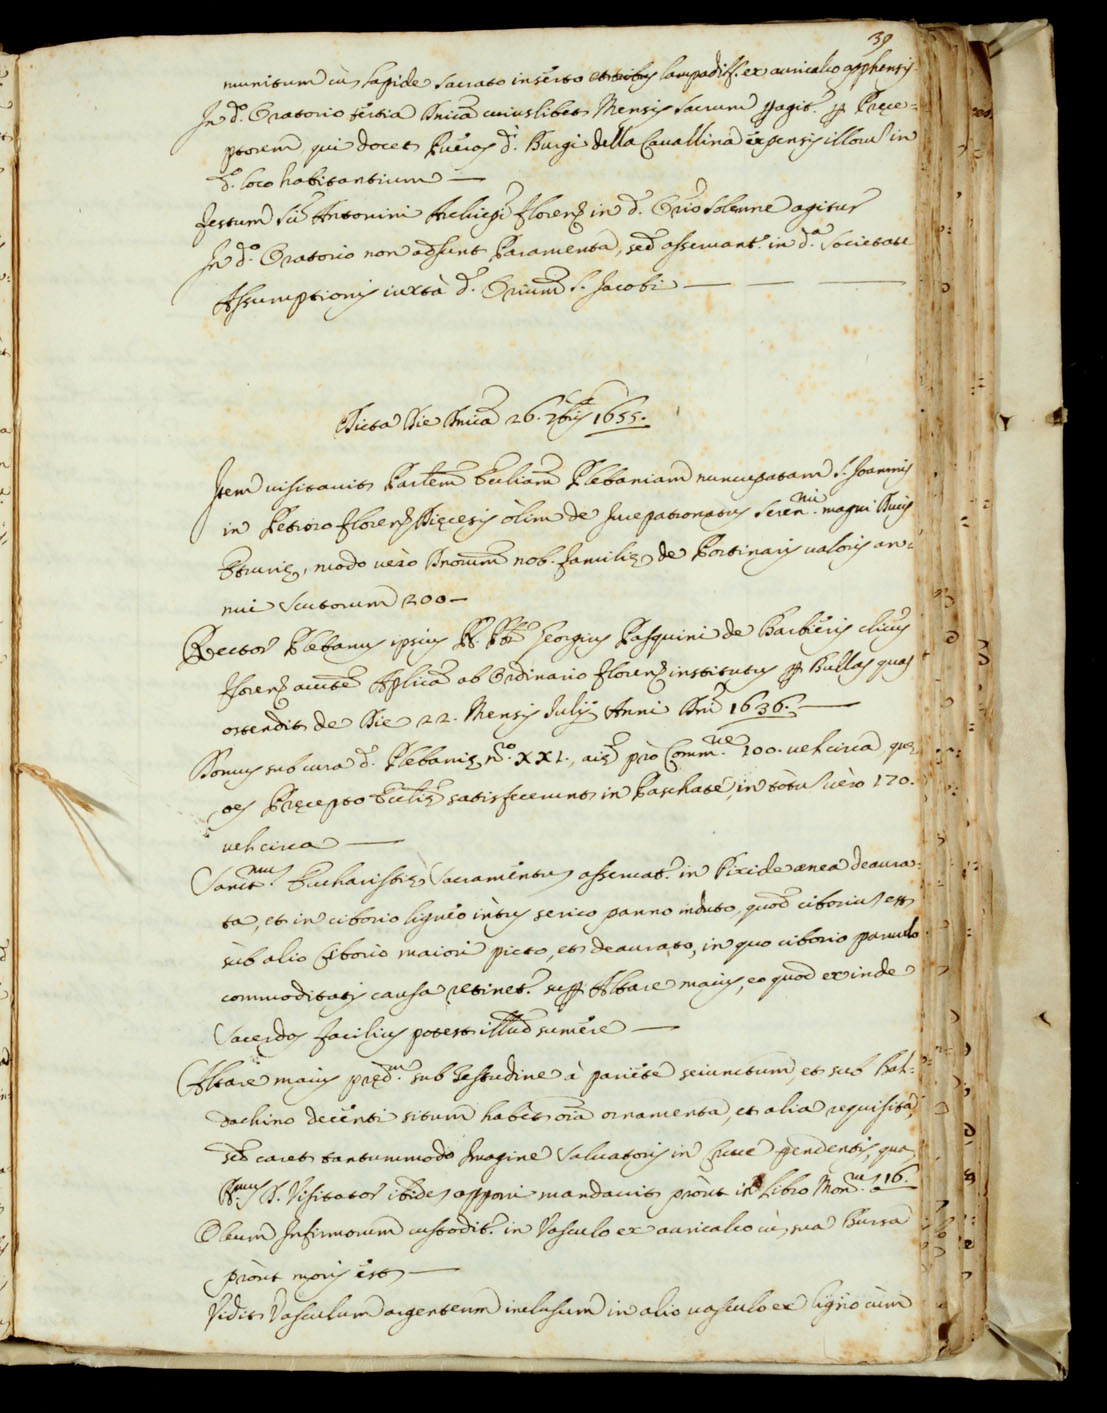 39
munitum cũ lapide sacrato inserto et cũ lampadib. ex auricalco appensis
In d.º Oratorio tertia Dñica cuiuslibet Mensis sacrum pagit.r p Prece=
ptorem, qui docet Pueros d.i Burgi della Cavallina expensis illorũ in
d.º loco habitantium —
Festum Sti Antonini Archiepi Floren in d.º Orio solemne agitur
In d.º Oratorio non adsunt Paramenta, sed asservant.r in d.a Societate
Assumptionis iuxta d. Orium S. Jacobi — — —
Dicta Die Dñica 26. 7bris 1655.
Item visitavit Parlem Eccliam Plebaniam nuncupatam S. Joannis
in Petroio Floren Diecesis olim de Iurepatronatus Seren.mi magni Ducis
Etrurię, modo vero Dnorum nob. familię de Portinaris valoris an=
nui scutorum 200 —
Rector Plebanus ipsius R. Pbr Georgius Pasquini de Barbieris clicus
Floren auctte Aplica ab Ordinario Floren institutus p Bullas quas
ostendit de Die 22. Mensis Julij Anni Dni 1636. —
Domus sub cura d. Plebanię n.º XXI., aię pro Comm.ne 100. vel circa, quę
oes Pręcepto Ecclię satisfecerunt in Paschate, in totũ vero 170.
vel circa —
Sanct.mũ Eucharistię Sacramentũ asservat.r in Pixide ænea deaura=
ta, et in ciborio ligneo intus serico panno induto, quod ciboriũ est
sub alio Ciborio maiori picto, et deaurato, in quo ciborio parvulo
commoditatis causa retinet.r supp Altare maius, eo quod exinde
Sacerdos facilius potest illud sumere —
Altare maius pręd.m sub Testudine à pariete seiunctum, et sub Bal=
dachino decenti situm habet oia ornamenta, et alia requisita,
sed caret tantummodo Imagine Salvatoris in Cruce pendentis, quã
R.mus D. Visitator ibidẽ apponi mandavit pròut in Libro Mon.nũ 16.
Oleum Infirmorum custodit.r in Vasculo ex auricalco cũ sua Bursa
pròut moris est —
Vidit Vasculum argenteum inclusum in alio vasculo ex ligno cum